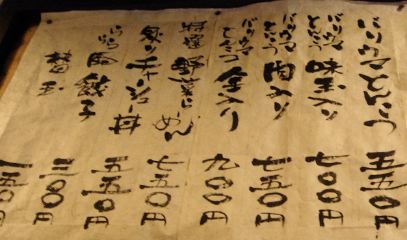 バリウマとんこつ 五五〇円
バリウマとんこつ 味玉入り 七〇〇円
バリウマとんこつ 肉入り 七五〇円
バリウマとんこつ 全入り 九〇〇円
特選 野菜 めん 七五〇円
炙りチャーシュー丼 五五〇円
餃子 三〇〇円
替玉 一五〇円